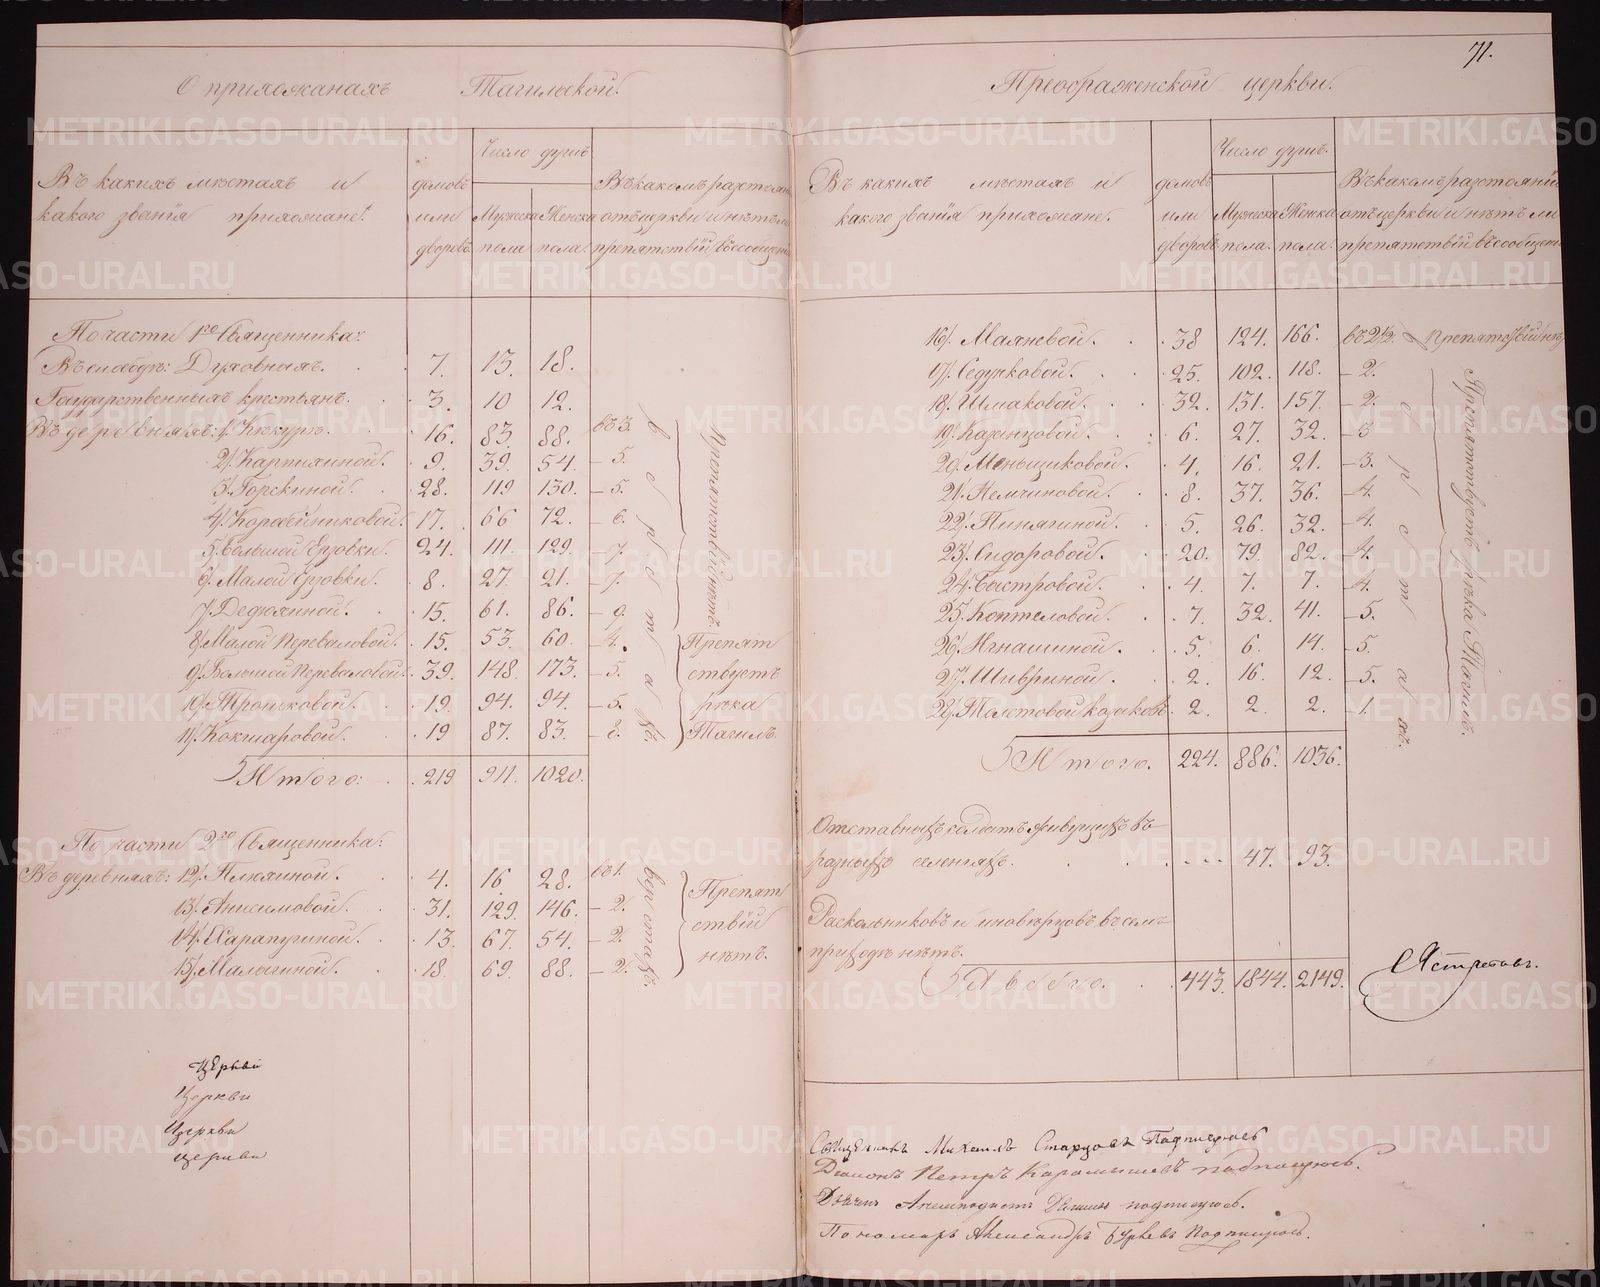 71.
О прихожанахъ Тагильской
Преображенской церкви.
Въ какихъ мѣстахъ и
какого званія прихожане.
домовъ
или
дворовъ.
Число душъ.
Мужеска
пола.
Женска
пола.
Въ какомъ разстояніи
отъ церкви и нѣтъ ли
препятствій въ сообщен
По части 1го Священника:
Въ слободѣ: Духовныхъ. 7. 13. 18.
Государственныхъ крестьянъ. 3. 10 12.
Въ деревняхъ: 1/. Кѣкурѣ. 16. 83. 88. въ 3.
2/. Карпихиной. 9. 39. 54. – 5.
3/. Горскиной. 28. 119 130. – 5.
4/. Коробейниковой. 17. 66 72. – 6.
5. Большой Ерзовки. 24. 111. 129. – 7.
6/. Малой Ерзовки. 8. 27. 21. – 7.
7/. Дедюхиной. 15. 61. 86. – 9.
8/. Малой Переваловой. 15. 53. 60. – 4.
9/. Большой Переваловой. 39. 148. 173. – 5.
10/. Трошковой. 19. 94. 94. – 5.
11/. Кокшаровой. 19 87. 83. – 8.
верстахъ.
Препятствій нѣтъ.
Препят
ствуетъ
рѣка
Тагилъ.
Итого: 219 911. 1020.
По части 2го Священника:
Въ деревняхъ: 12/. Плюхиной. 4. 16. 28. въ 1.
13/. Анисимовой. 31. 129. 146. – 2.
14/. Харапугиной. 13. 67. 54. – 2.
15/. Малыгиной. 18. 69. 88. – 2.
верстахъ.
Препят
ствій
нѣтъ.
Церкви
Церкви
Церкви
Церкви
Въ какихъ мѣстахъ и
какого званія прихожане.
домовъ
или
дворовъ
Число душъ.
Мужеска
пола.
Женска
пола.
Въ какомъ разстояніи
отъ церкви и нѣтъ ли
препятствій въ сообщен
16/. Маяневой. 38 124. 166. въ 2½. Препятствій нѣт
17/. Седунковой. 25. 102. 118. – 2.
18/. Шмаковой. 32. 131. 157. – 2.
19/. Казанцовой. 6. 27. 32. – 3
20/. Меньщиковой. 4. 16. 21. – 3.
21/. Немчиновой. 8. 37. 36. – 4.
22/. Пинягиной. 5. 26. 32. – 4.
23/. Сидоровой. 20. 79. 82. – 4.
24/. Быстровой. 4. 7. 7. – 4.
25/. Коптеловой. 7. 32. 41. – 5.
26/. Игнашиной. 5. 6. 14. – 5.
27/. Шивриной. 2. 16. 12. – 5.
28/. Толстовой казаковъ 2. 2. 2. – 1.
верстахъ.
Препятствуетъ рѣка Тагилъ.
Итого. 224. 886. 1036.
Отставныхъ солдатъ живущихъ въ
разныхъ селеніяхъ. 47. 93.
Раскольниковъ и иновѣрцовъ въ семъ
приходѣ нѣтъ.
А всего. 443. 1844. 2149.
Священникъ Михаилъ Старцовъ Подписуюсь
Діаконъ Петръ Карамышевъ подписуюсь.
Дьячекъ подписуюсь.
Пономарь Александръ Подписуюсь.
METRIKI.GASO-URAL.RU